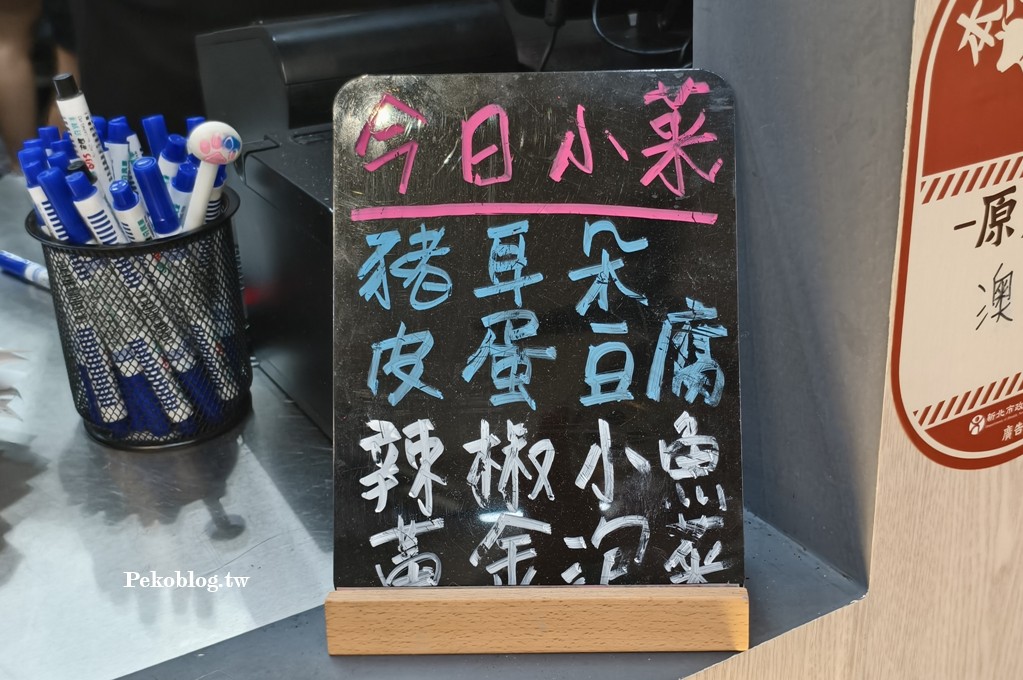 今日小菜
豬耳朵
皮蛋豆腐
辣椒小魚
黃金泡菜
原
澳
新北市政
廣告
Pekoblog.tw